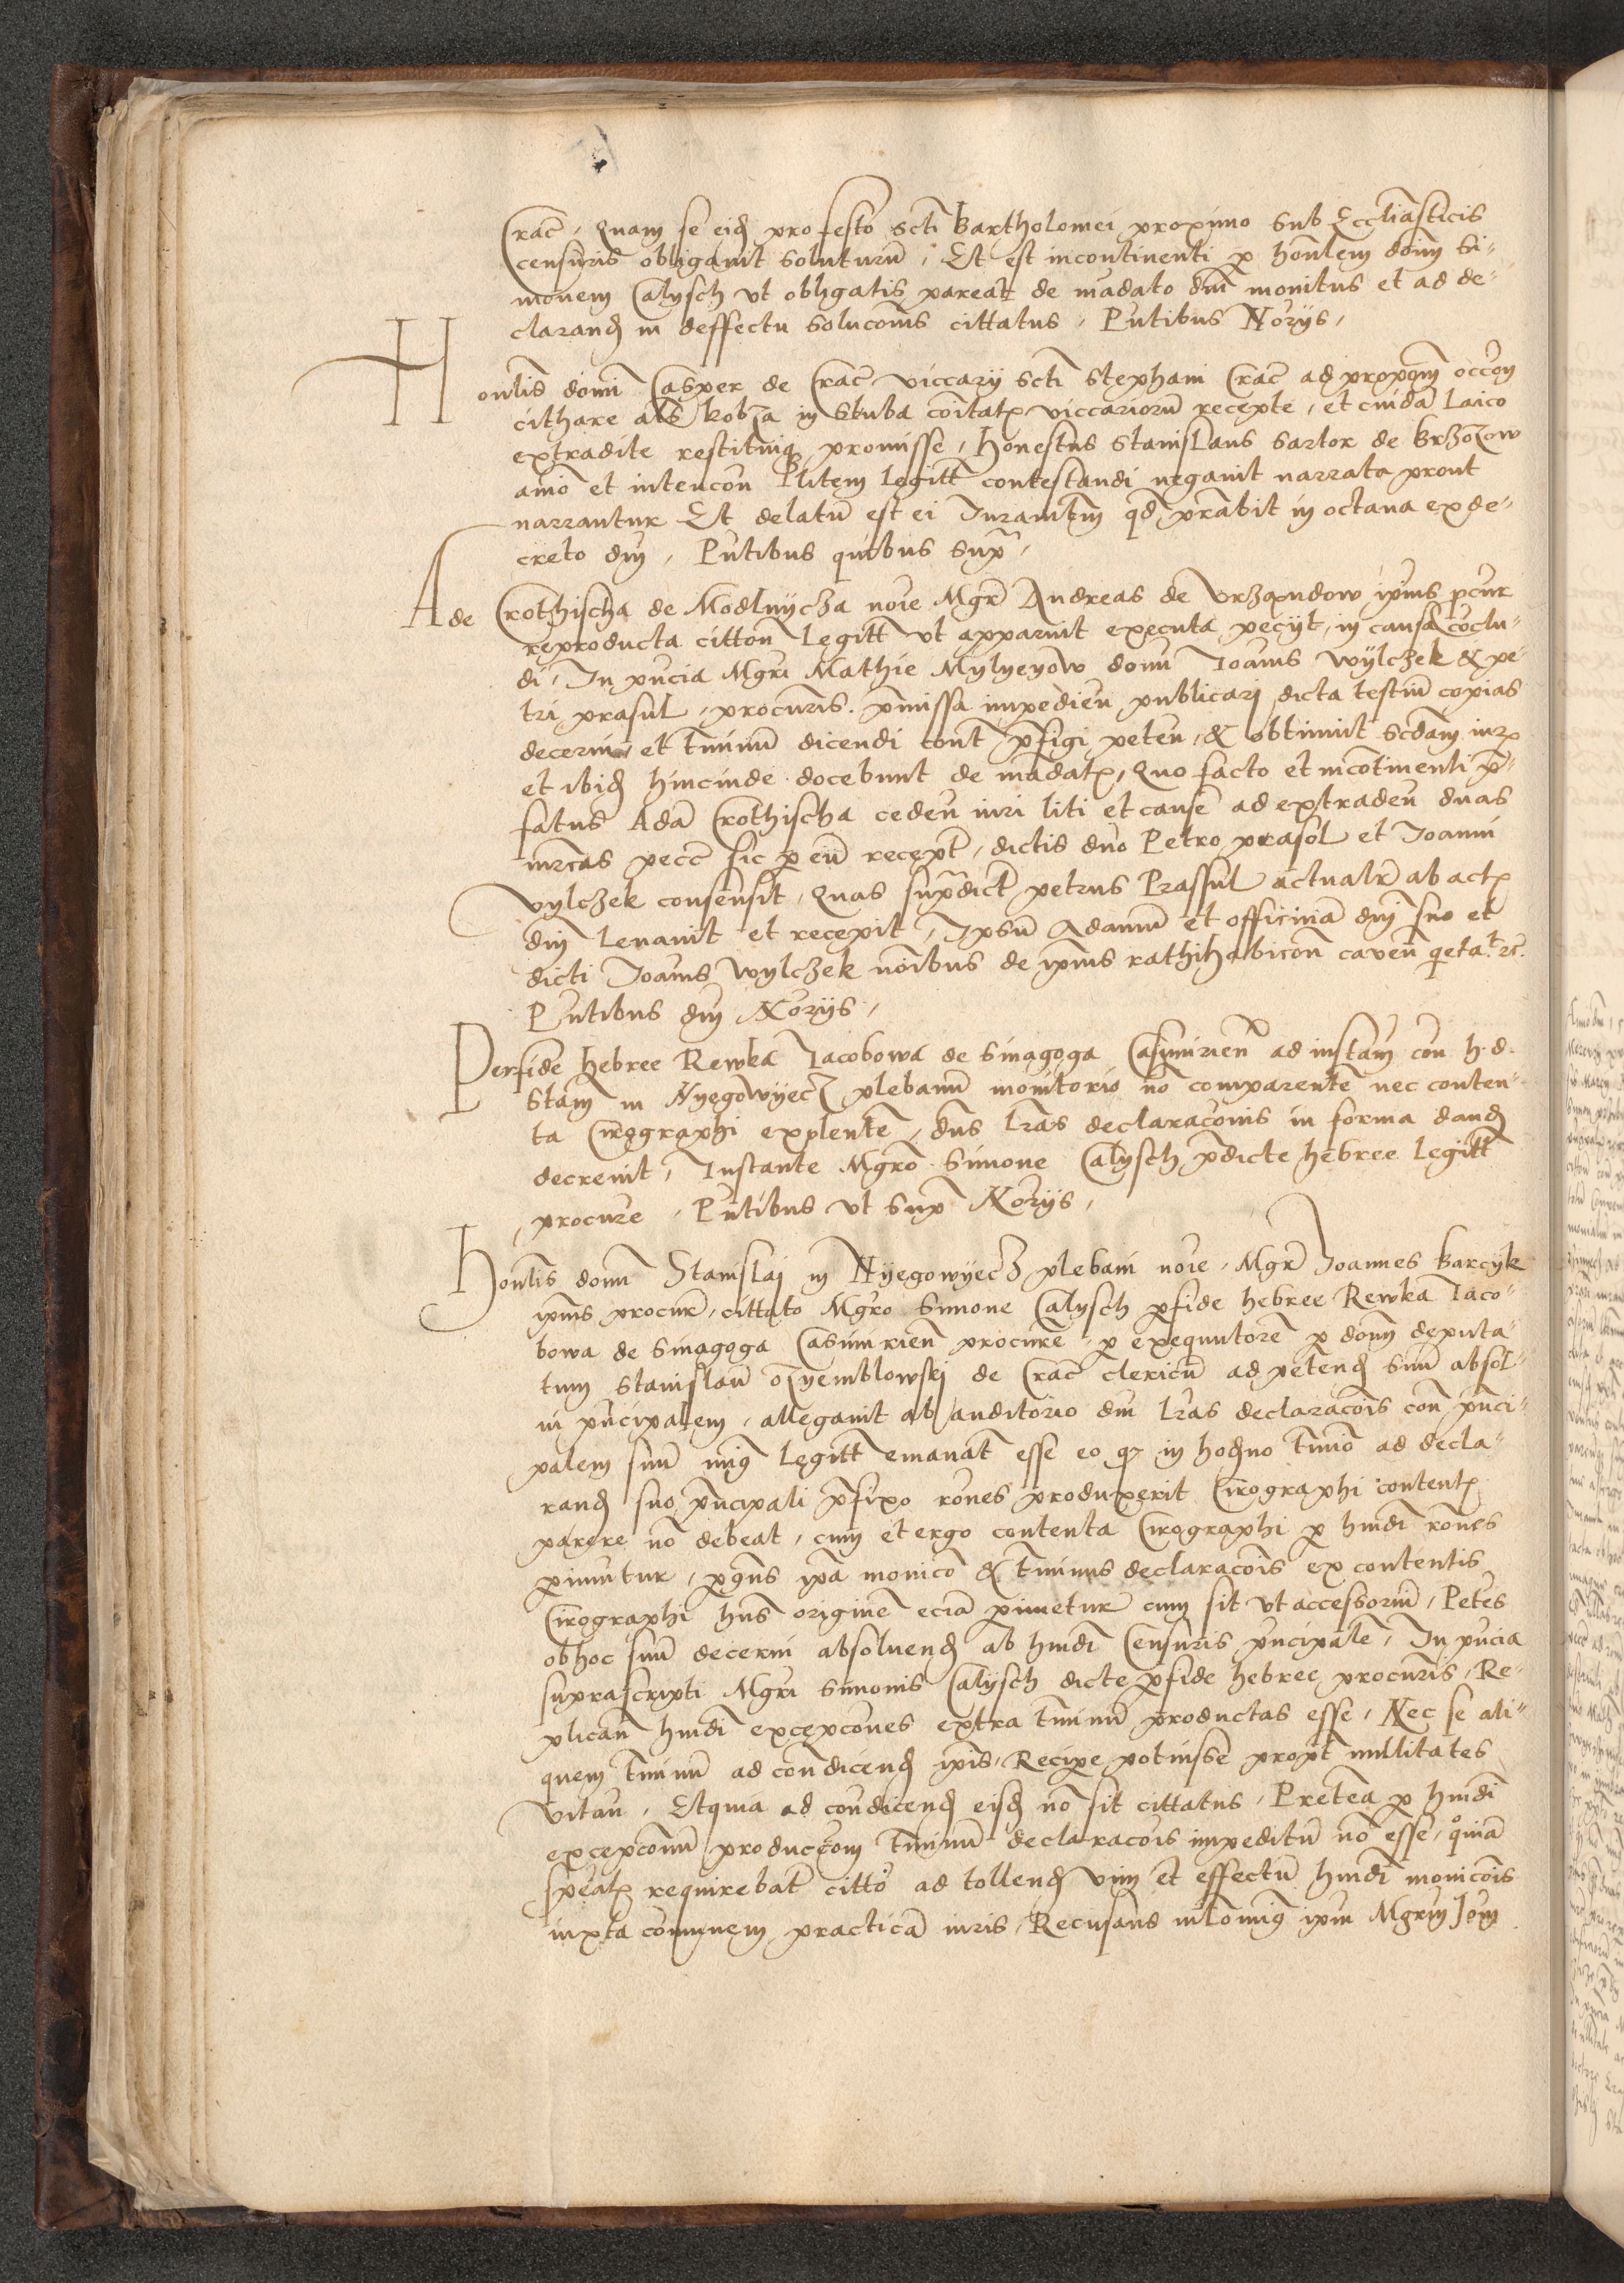 Crac̄, Quam se eid̨ pro festo Sct̄i Bartholomei proximo sub Eccl̄iasticis
censuris obligauit soluturū, Et est incontinenti p̱ hon̄lem dom̄ Si-
monem Calysch vt obligatis pareat de mādato dn̄i monitus et ad de-
clarand̨ in deffectu soluc̄onis cittatus, Pn̄tibus Nōrijs,
Honl̄is domi Casper de Crac̄ viccarij sct̄i stephani Crac̄ ad propōm occ̄on
cithare al̄s kobza in stuba cōitatꝝ viccariorū recepte, et cuidā Laico
extradite restituiqꝫ promisse, Honestus Stanislaus Sartor de Brzozow
aīo et intenc̄on Litem Legitt̄ contestandi negauit narrata prout
narrantur Et delatū est ei Iuramtm̄ qd̄ prābit in octaua ex de-
creto dn̄i, Pn̄tibus quibus supꝛ̄,
Ade Crothischa de Modlnycza noīe Mgr̄ Andreas de Vrzandow ip̄ius ꝓcur
reproducta citton̄ Legitt̄ vt apparuit executa pecijt, in causa cōclu-
di, In pn̄cia Mgrī Mathie Mylyeyow domi Ioan̄is Wylczek & pe-
tri prasul, procurīs. p̄missa impedieñ publicari dicta testiū copias
decerni, et t̄minū dicendi cont̄ p̄figi peteñ, & obtinuit scd̄am iurꝝ
et ibid̨ hincinde docebunt de mādatꝝ, Quo facto et incōtinenti p̄-
fatus Adā Crothischa cedeñ iuri liti et cause ad extradeñ duas
mrc̄as pecc̄ sic p̱ eū recept̄, dictis duō Petro prasol et Ioanni
vylczek consensit, Quas supradict̄ petrus Prassul actualr̄ ab actꝝ
dn̄i Leuauit et recepit, Ipsū Adamū et officinā dn̄i suo et
dicti Ioan̄is Wylczek noībus de ip̄ius rathihabicōn caven̄ qeta.t ꝛc̄.
Pn̄tibus dn̄i Nōrijs,
Perfide hebree Rewka Iacobowa de sinagoga Casimirien̄ ad instām con h. d.
Stām in Nyegowyecz plebanū monitorio nō comparente nec conten-
ta Cirographi explente, dn̄s Lr̄as declarac̄onis in forma dand̨
decreuit, Instante Mgrō Simone Calysch p̄dicte hebree Legitt̄
procure, Pn̄tibus vt supꝛ̄ Nōrijs,
Honl̄is domi Stanislaj in Nyegowyecz plebani noīe, Mgr̄ Ioannes Barcyk
ip̄ius procur̄, cittato Mgrō Simone Calysch p̱fide hebree Rewka Iaco-
bowa de Sinagoga Casimirien̄ procurē, p̱ exequutorē p̱ dom̄ deputa-
tum Stanislaū ozyemblowskj de Crac̄ clericū ad petend̨ suū absol-
ui pn̄cipalem, allegauit ab auditorio dn̄i Lr̄as declarac̄ois con̄ pn̄ci-
palem suū minꝰ Legitt̄ emanat̄ esse eo qꝛ in hod̨no t̄mio ad decla-
rand̨ suo pn̄cipali p̄fixo rōnes produxerit Cirographi contentꝝ
parere nō debeat, cum et ergo contenta Cirographi p̱ hm̄di rōnes
p̱imūtur, p̱qn̄s ip̄a monicō & t̄minus declarac̄ois ex contentis
Cirographi hn̄s originē eciā p̱imetur cum sit vt accessoriū, Petēs
ob hoc suū decerni absoluend̨ ab hm̄di Censuris pn̄cipalē, In pn̄cia
suprascripti Mgrī Simonis Calysch dicte p̱fide hebree procurīs, Re-
plican̄ hm̄di excepcōnes extra t̄minū productas esse, Nec se ali-
quem t̄minū ad con̄dicend̨ ip̄is, Recipe potuisse propt̄ nullitates
vitan̄, Et quia ad con̄dicend̨ eisd̨ nō sit cittatus, Pretēa p̱ hm̄di
excepcōnū productōm t̄minū declarac̄ois impeditū nō esse, qm̄ā
sp̄ealꝝ requirebat̄ citto ad tollend̨ vim et effectū hm̄di monicōis
iuxta communem practicā iuris, Recusans nltomiꝰ ip̄m Mgrm̄ Iōm